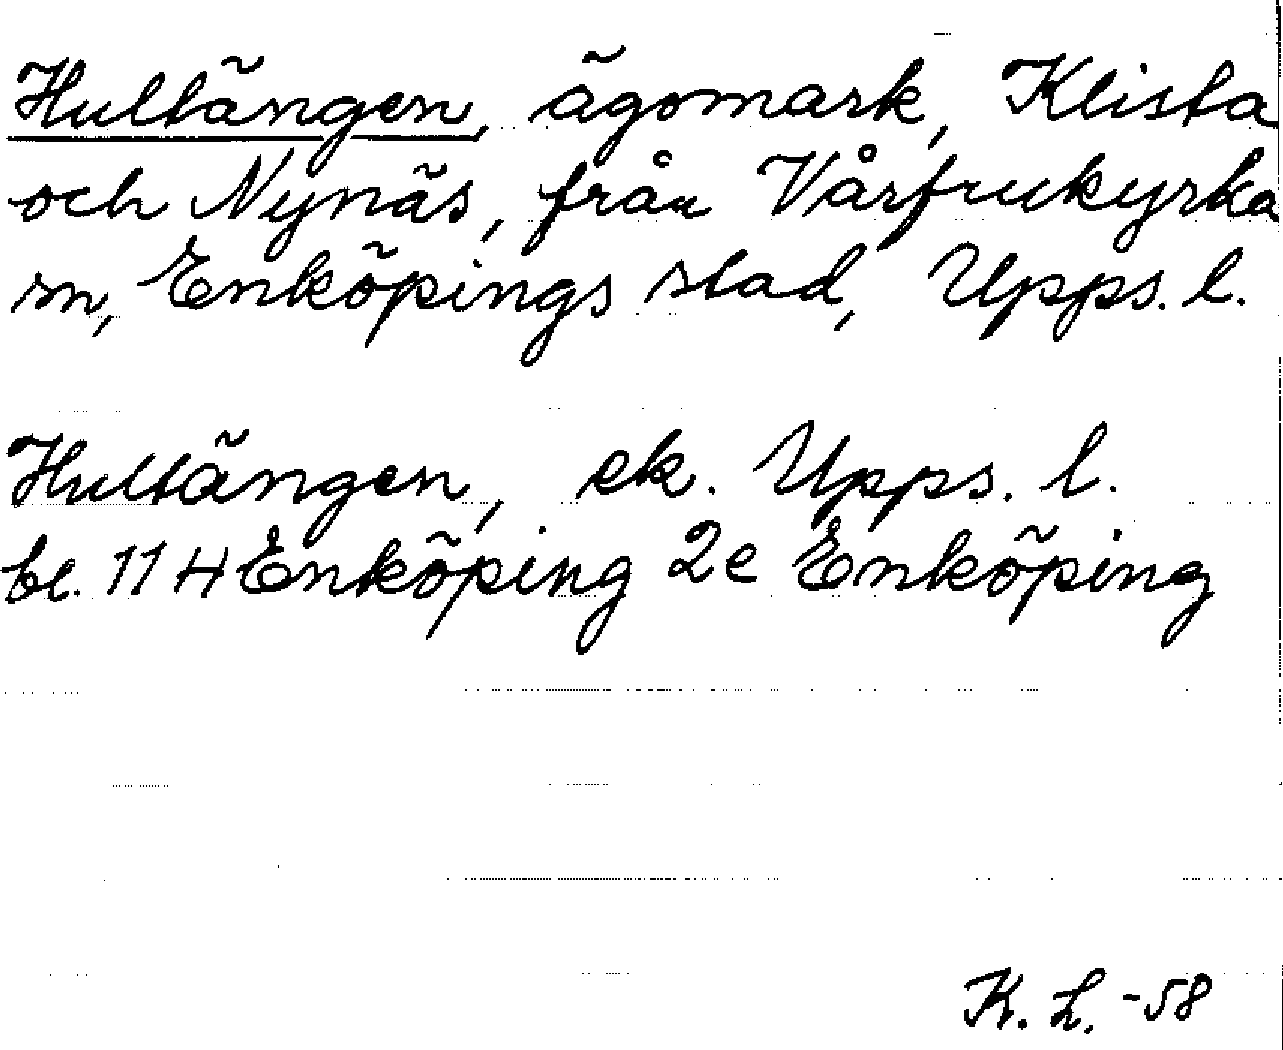 Hultängen, ägomark, Klista
och Nynäs, från Vårfrukyrka
sn, Enköpings stad, Upps. l.
Hultängen, ek. Upps. l.
bl. 11 H Enköping 2e Enköping
K. L. -58